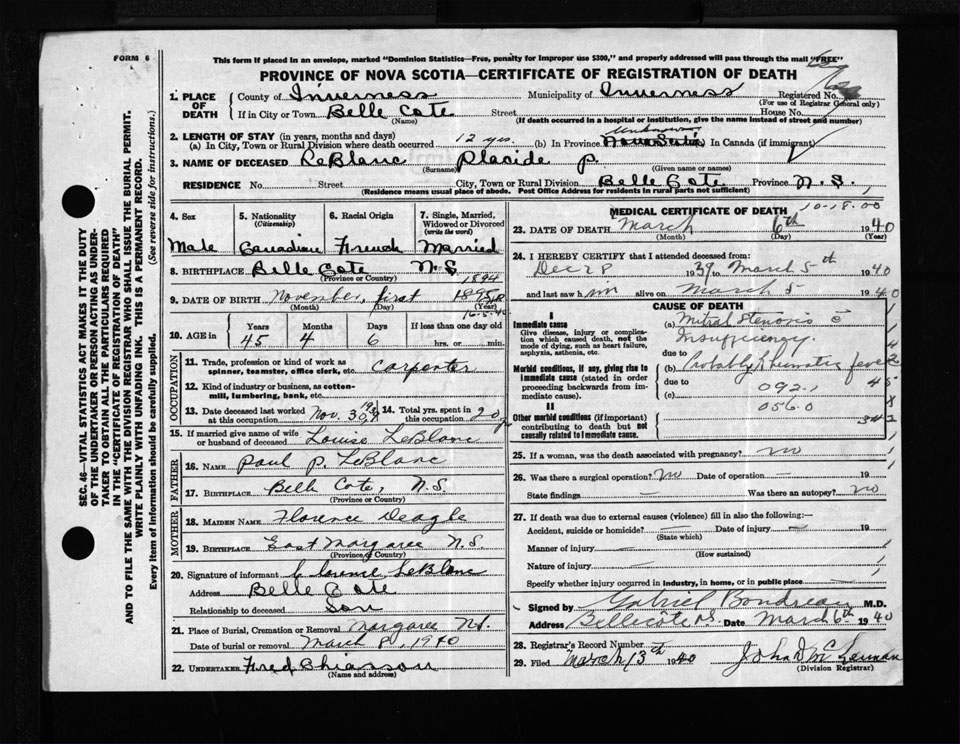 FORM 6
This form if placed in an envelope, marked "Dominion Statistics—Free, penalty for improper use $300," and properly addressed will pass through the mail "FREE"
PROVINCE OF NOVA SCOTIA—CERTIFICATE OF REGISTRATION OF DEATH
1. PLACE OF DEATH
County of Inverness Municipality of Inverness Registered No.
(For use of Registrar General only)
If in City or Town Belle Cote Street House No.
(Name) (If death occurred in a hospital or institution, give the name instead of street and number)
2. LENGTH OF STAY (in years, months and days)
(a) In City, Town or Rural Division where death occurred 12 yrs. (b) In Province Unknown Nova Scotia (c) In Canada (if immigrant)
3. NAME OF DECEASED LeBlanc Placide P.
(Surname) (Given name or names)
RESIDENCE No. Street City, Town or Rural Division Belle Cote Province N.S.
(Residence means usual place of abode. Post Office Address for Residents in rural parts not sufficient)
4. Sex 5. Nationality (Citizenship) 6. Racial Origin 7. Single, Married, Widowed or Divorced (write the word)
Male Canadian French Married
8. BIRTHPLACE Belle Cote N.S.
(Province or Country)
1894
9. DATE OF BIRTH November first 1895
(Month) (Day) (Year)
16-5-40
10. AGE in Years Months Days If less than one day old
45 4 6 hrs. or min.
OCCUPATION
11. Trade, profession or kind of work as spinner, teamster, office clerk, etc. Carpenter
12. Kind of industry or business, as cotton-mill, lumbering, bank, etc.
13. Date deceased last worked at this occupation Nov. 30 1939 14. Total yrs. spent in this occupation 20 y
15. If married give name of wife or husband of deceased Louise LeBlanc
FATHER
16. NAME Paul P. LeBlanc
17. BIRTHPLACE Belle Cote, N.S.
(Province or Country)
MOTHER
18. MAIDEN NAME Florence Deagle
19. BIRTHPLACE East Margaree N.S.
(Province or Country)
20. Signature of informant Clarence LeBlanc
Address Belle Cote
Relationship to deceased Son
21. Place of Burial, Cremation or Removal Margaree N.S.
Date of burial or removal March 8, 1940
22. UNDERTAKER Fred Chiasson
(Name and address)
MEDICAL CERTIFICATE OF DEATH 10-18.00
23. DATE OF DEATH March 6th 1940
(Month) (Day) (Year)
24. I HEREBY CERTIFY that I attended deceased from:
Dec 28 1939 to March 5th 1940
and last saw him alive on March 5 1940
CAUSE OF DEATH
I
Immediate cause
Give disease, injury or complication which caused death, not the mode of dying, such as heart failure, asphyxia, asthenia, etc.
(a) Mitral Stenosis c̄
Insufficiency.
due to
Morbid conditions, if any, giving rise to immediate cause (stated in order proceeding backwards from immediate cause).
(b) Probably Rheumatic fever
due to
092.1
(c)
II
056.0
Other morbid conditions (if important) contributing to death but not causally related to immediate cause.
25. If a woman, was the death associated with pregnancy? no
26. Was there a surgical operation? no Date of operation — 19
State findings — Was there an autopsy? no
27. If death was due to external causes (violence) fill in also the following:—
Accident, suicide or homicide? — Date of injury — 19
(State which)
Manner of injury —
(How sustained)
Nature of injury —
Specify whether injury occurred in industry, in home, or in public place —
Signed by Gabriel Boudreau M.D.
Address Bellecote N.S. Date March 6th 1940
28. Registrar's Record Number
29. Filed March 13th 1940 John D McLennan
(Division Registrar)
SEC. 46—VITAL STATISTICS ACT MAKES IT THE DUTY
OF THE UNDERTAKER OR PERSON ACTING AS UNDER-
TAKER TO OBTAIN ALL THE PARTICULARS REQUIRED
IN THE "CERTIFICATE OF REGISTRATION OF DEATH"
AND TO FILE THE SAME WITH THE DIVISION REGISTRAR WHO SHALL ISSUE THE BURIAL PERMIT.
WRITE PLAINLY WITH UNFADING INK. THIS IS A PERMANENT RECORD.
Every item of information should be carefully supplied. (See reverse side for instructions.)